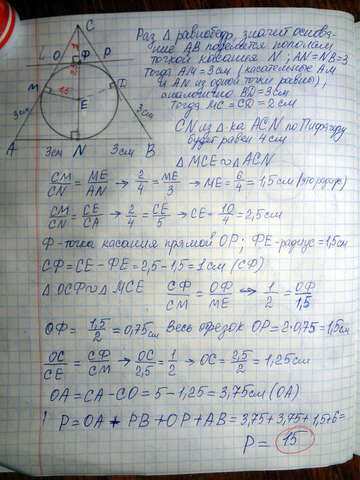 C
L O Ф P
2,5
M 1,5 D
E
3см 3см
A 3см N 3см B
Раз Δ равнобедр, значит основа-
ние AB поделится пополам
точкой касания N; AN=NB=3
Тогда AM=3см (касательные AM
и AN из одной точки равно),
аналогично BD=3см
Тогда MC=CD=2см
CN из Δ-ка ACN по Пифагору
будет равен 4см
ΔMCE∾ΔACN
CM/CN = ME/AN → 2/4 = ME/3 → ME = 6/4 = 1,5см (это радиус)
CM/CN = CE/CA → 2/4 = CE/5 → CE = 10/4 = 2,5см
Ф-точка касания прямой OP; ФЕ-радиус=1,5см
CФ=CE-ФЕ=2,5-1,5=1см (CФ)
ΔOCФ∾ΔMCE CФ/CM = OФ/ME → 1/2 = OФ/1,5
OФ = 1,5/2 = 0,75см Весь отрезок OP=2·0,75=1,5см
OC/CE = CФ/CM → OC/2,5 = 1/2 → OC = 2,5/2 = 1,25см
OA=CA-CO=5-1,25=3,75см (OA)
P=OA+PB+OP+AB=3,75+3,75+1,5+6=
P= 15